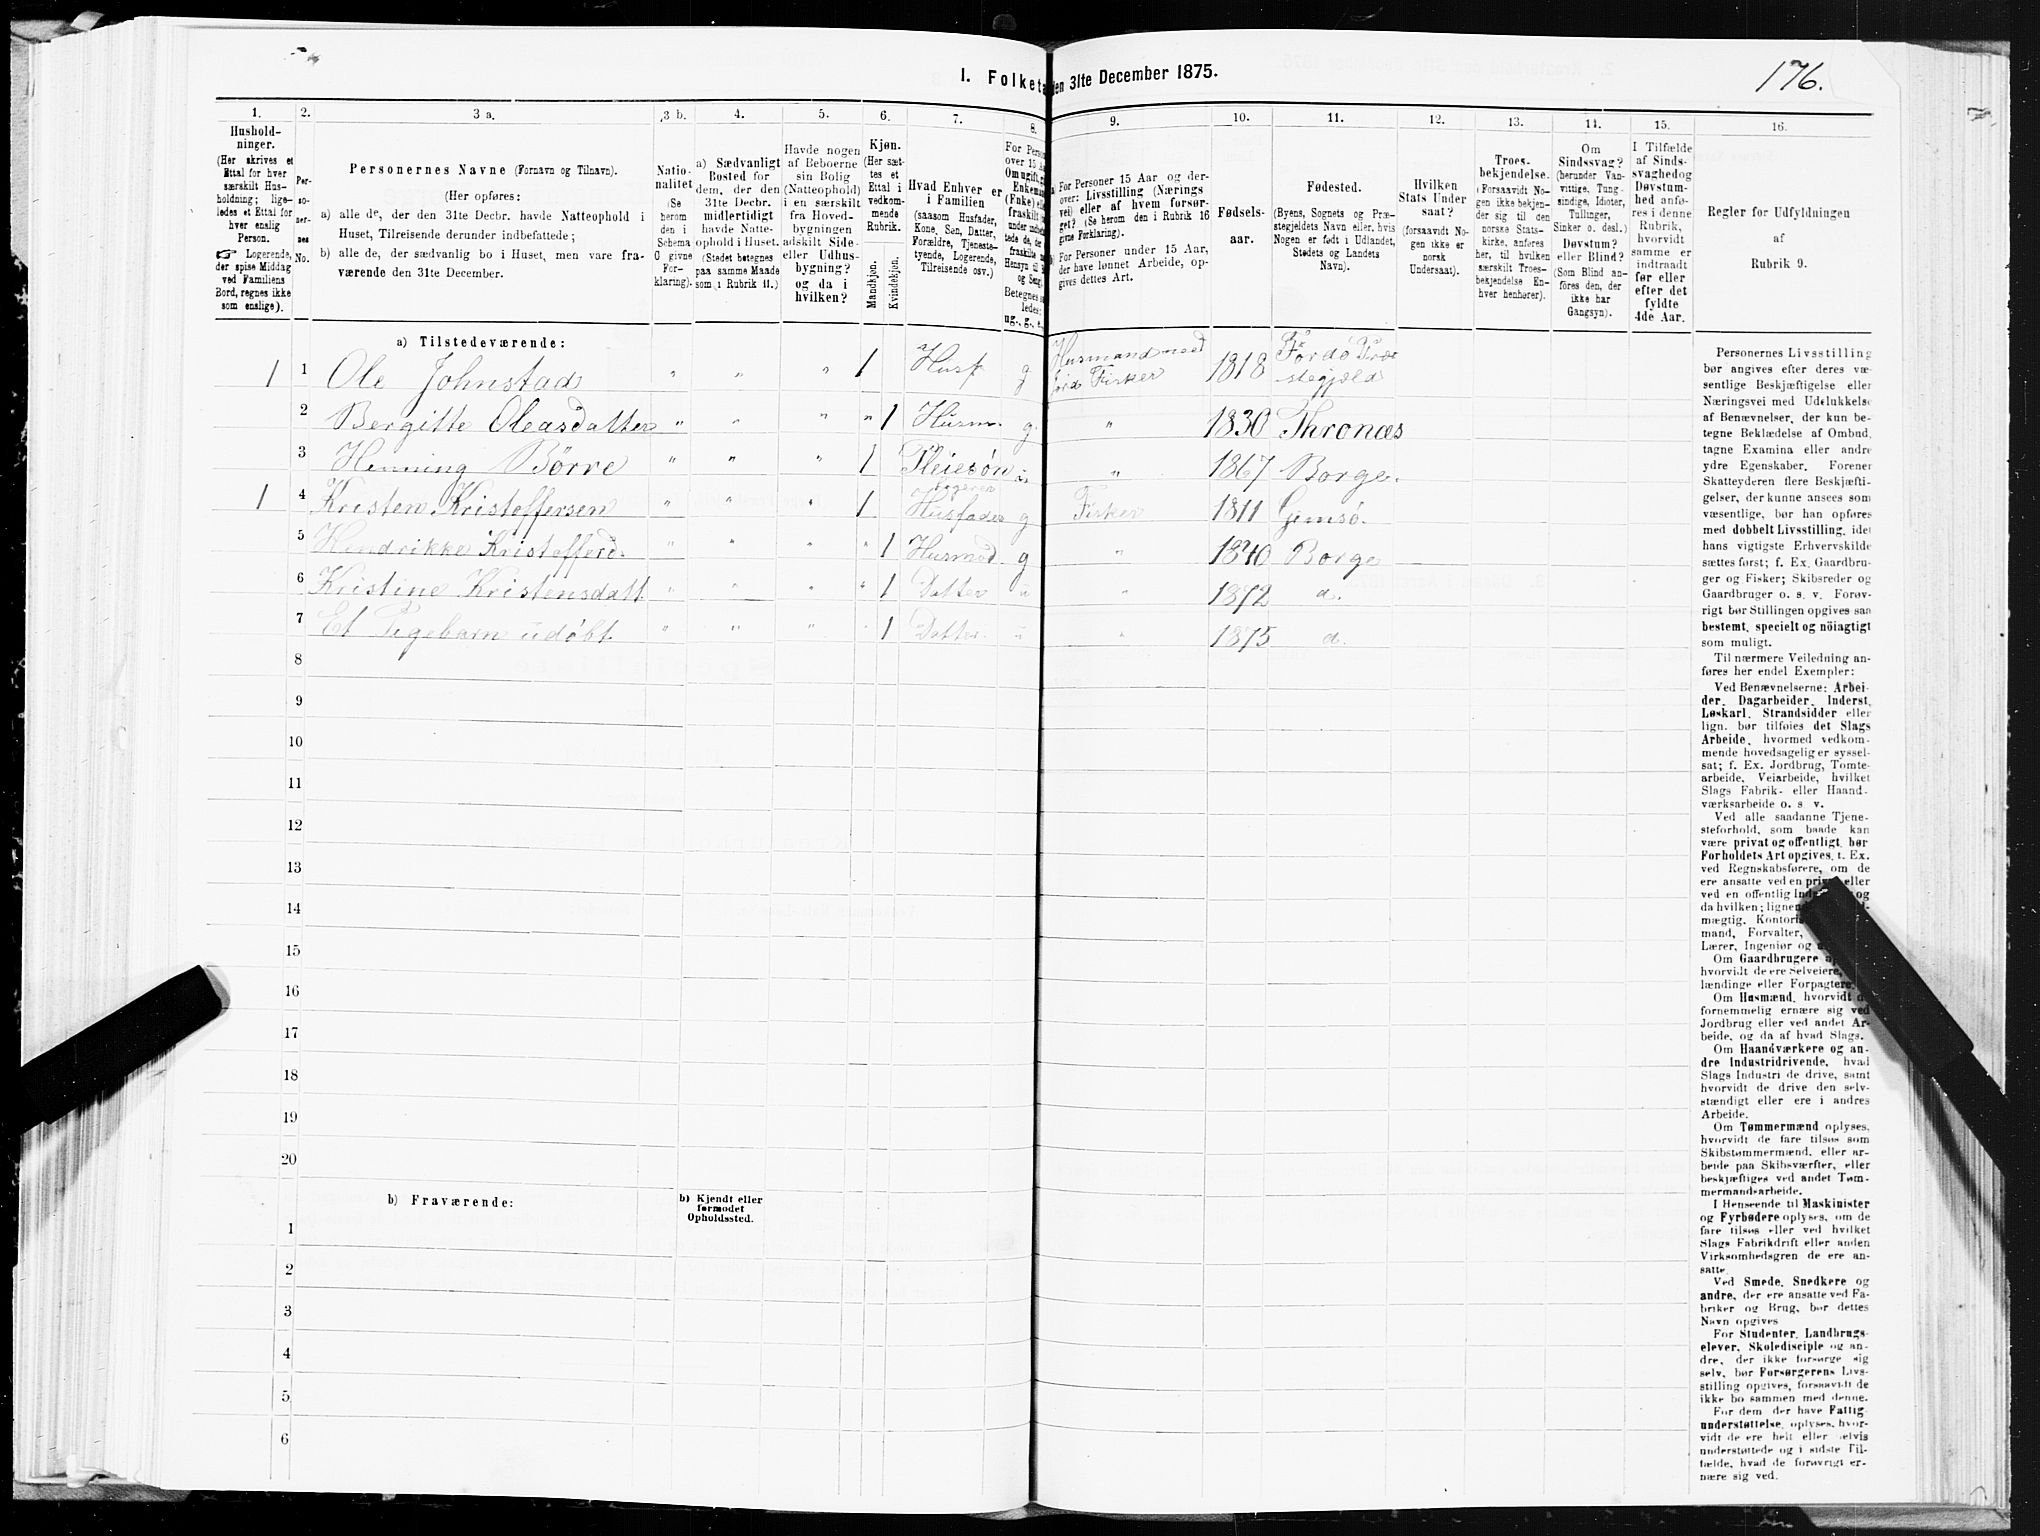 I. Folketæ den 31te December 1875.
176.
1. 2. 3 a. 3 b. 4. 5. 6. 7. 8. 9. 10. 11. 12. 13. 14. 15. 16.
Hushold-
ninger.
(Her skrives et
Ettal for hver
særskilt Hus-
holdning; lige-
ledes et Ettal for
hver enslig
Person.
☞ Logerende,
der spise Middag
ved Familiens
Bord, regnes ikke
som enslige).
Per-
so-
ner-
nes
No.
Personernes Navne (Fornavn og Tilnavn).
(Her opføres:
a) alle de, der den 31te Decbr. havde Natteophold i
Huset, Tilreisende derunder indbefattede;
b) alle de, der sædvanlig bo i Huset, men vare fra-
værende den 31te December.
Natio-
nalitet
(Se
herom
den i
Schema
O givne
For-
klaring).
a) Sædvanligt
Bosted for
dem, der den
31te Decbr.
midlertidigt
havde Natte-
ophold i Huset.
(Stedet betegnes
paa samme Maade
som i Rubrik 11.)
Havde nogen
af Beboerne
sin Bolig
(Natteophold)
i en særskilt
fra Hoved-
bygningen
adskilt Side-
eller Udhus-
bygning?
og da i
hvilken?
Kjøn.
(Her sæt-
tes et
Ettal i
vedkom-
mende
Rubrik.
Mandkjøn.
Kvindekjøn.
Hvad Enhver er
i Familien
(saasom Husfader,
Kone, Søn, Datter,
Forældre, Tjeneste-
tyende, Logerende,
Tilreisende osv.)
For Person
over 15 Aa
Om ugift, gi
Enkemand
(Enke) elle
fraskilt
Hensyn til
og Seng.
Betegnes saa
ledes:
ug., g., e.,
For Personer 15 Aar og der-
over: Livsstilling (Nærings
vei) eller af hvem forsør-
get? (Se herom den i Rubrik 16
givne Forklaring).
For Personer under 15 Aar,
der have lønnet Arbeide, op-
gives dettes Art.
Fødsels-
aar.
Fødested.
(Byens, Sognets og Præ-
stegjeldets Navn eller, hvis
Nogen er født i Udlandet,
Stedets og Landets
Navn).
Hvilken
Stats Under
saat?
(forsaavidt No-
gen ikke er
norsk
Undersaat).
Troes-
bekjendelse.
(Forsaavidt No-
gen ikke bekjen-
der sig til den
norske Stats-
kirke, anføres
her, til hvilken
særskilt Troes-
bekjendelse En-
hver henhører).
Om
Sindssvag?
(herunder Van-
vittige, Tung-
sindige, Idioter,
Tullinger,
Sinker o. desl.)
Døvstum?
eller Blind?
(Som Blind an-
føres den, der
ikke har
Gangsyn).
I Tilfælde
af Sinds-
svaghed og
Døvstum-
hed anfø-
res i denne
Rubrik,
hvorvidt
samme er
indtraadt
før eller
efter det
fyldte
4de Aar.
Regler for Udfyldningen
af
Rubrik 9.
a) Tilstedeværende:
1 1 Ole Johnstad " " " 1 Husf g Husmand med jord Fisker 1818 Fordø Præstegjæld
2 Bergitte Oleasdatter " " " " 1 Husm. g. " 1830 Thronæs
3 Henning Børre " " " 1 Pleiesøn u " 1867 Borge.
1 4 Kristen Kristoffersen " " " 1 Logerer Husfader g Fisker 1811 Gimsø.
5 Hendrikke Kristofferd. " " " " 1 Husmod g " 1840 Borge
6 Kristine Kristensdatt " " " " 1 Datter u " 1872 d.
7 Et Pigebarn udøbt " " " " 1 Datter. u " 1875 d.
8
9
10
11
12
13
14
15
16
17
18
19
20
b) Fraværende:
b) Kjendt eller
formodet
Opholdssted.
1
2
3
4
5
6
Personernes Livsstilling
bør angives efter deres væ-
sentlige Beskjæftigelse eller
Næringsvei med Udelukkelse
af Benævnelser, der kun be-
tegne Beklædelse af Ombud,
tagne Examina eller andre
ydre Egenskaber. Forener
Skatteyderen flere Beskjæfti-
gelser, der kunne ansees som
væsentlige, bør han opføres
med dobbelt Livsstilling, idet
hans vigtigste Erhvervskilde
sættes først; f. Ex. Gaardbru-
ger og Fisker; Skibsreder og
Gaardbruger o. s. v. Forøv-
rigt bør Stillingen opgives saa
bestemt, specielt og nöiagtigt
som muligt.
Til nærmere Veiledning an-
føres her endel Exempler:
Ved Benævnelserne: Arbei-
der, Dagarbeider, Inderst,
Løskarl, Strandsidder eller
lign. bør tilføies det Slags
Arbeide, hvormed vedkom-
mende hovedsagelig er syssel-
sat; f. Ex. Jordbrug, Tomte-
arbeide, Veiarbeide, hvilket
Slags Fabrik- eller Haand-
værksarbeide o. s v.
Ved alle saadanne Tjene-
steforhold, som baade kan
være privat og offentligt, bør
Forholdets Art opgives, f. Ex.
ved Regnskabsførere, om de
ere ansatte ved en privat eller
ved en offentlig og
da hvilken;
mægtig,
mand, Forvalter,
Lærer, Ingeniør og
Om Gaardbrugere
hvorvidt de ere Selveiere,
lændinge eller Forpagtere.
Om Husmænd, hvorvidt de
fornemmelig ernære sig ved
Jordbrug eller ved andet Ar-
beide, og da af hvad Slags.
Om Haandværkere og an-
dre Industridrivende, hvad
Slags Industri de drive, samt
hvorvidt de drive den selv-
stændigt eller ere i andres
Arbeide.
Om Tømmermænd oplyses,
hvorvidt de fare tilsøs som
Skibstømmermænd, eller ar-
beide paa Skibsværfter, eller
beskjæftiges ved andet Tøm-
mermandsarbeide.
I Henseende til Maskinister
og Fyrbødere oplyses, om de
fare tilsøs eller ved hvilket
Slags Fabrikdrift eller anden
Virksomhedsgren de ere an-
satte.
Ved Smede, Snedkere og
andre, der ere ansatte ved Fa-
briker og Brug, bør dettes
Navn opgives
For Studenter, Landbrugs-
elever, Skoledisciple og an-
dre, der ikke forsørge sig
selv, bør Forsørgerens Livs-
stilling opgives, forsaavidt de
ikke bo sammen med denne.
For dem, der have Fattig-
understøttelse, oplyses, hvor-
vidt de ere helt eller delvis
understøttede og i sidste Til-
fælde, hvad de forøvrigt er-
nære sig ved.